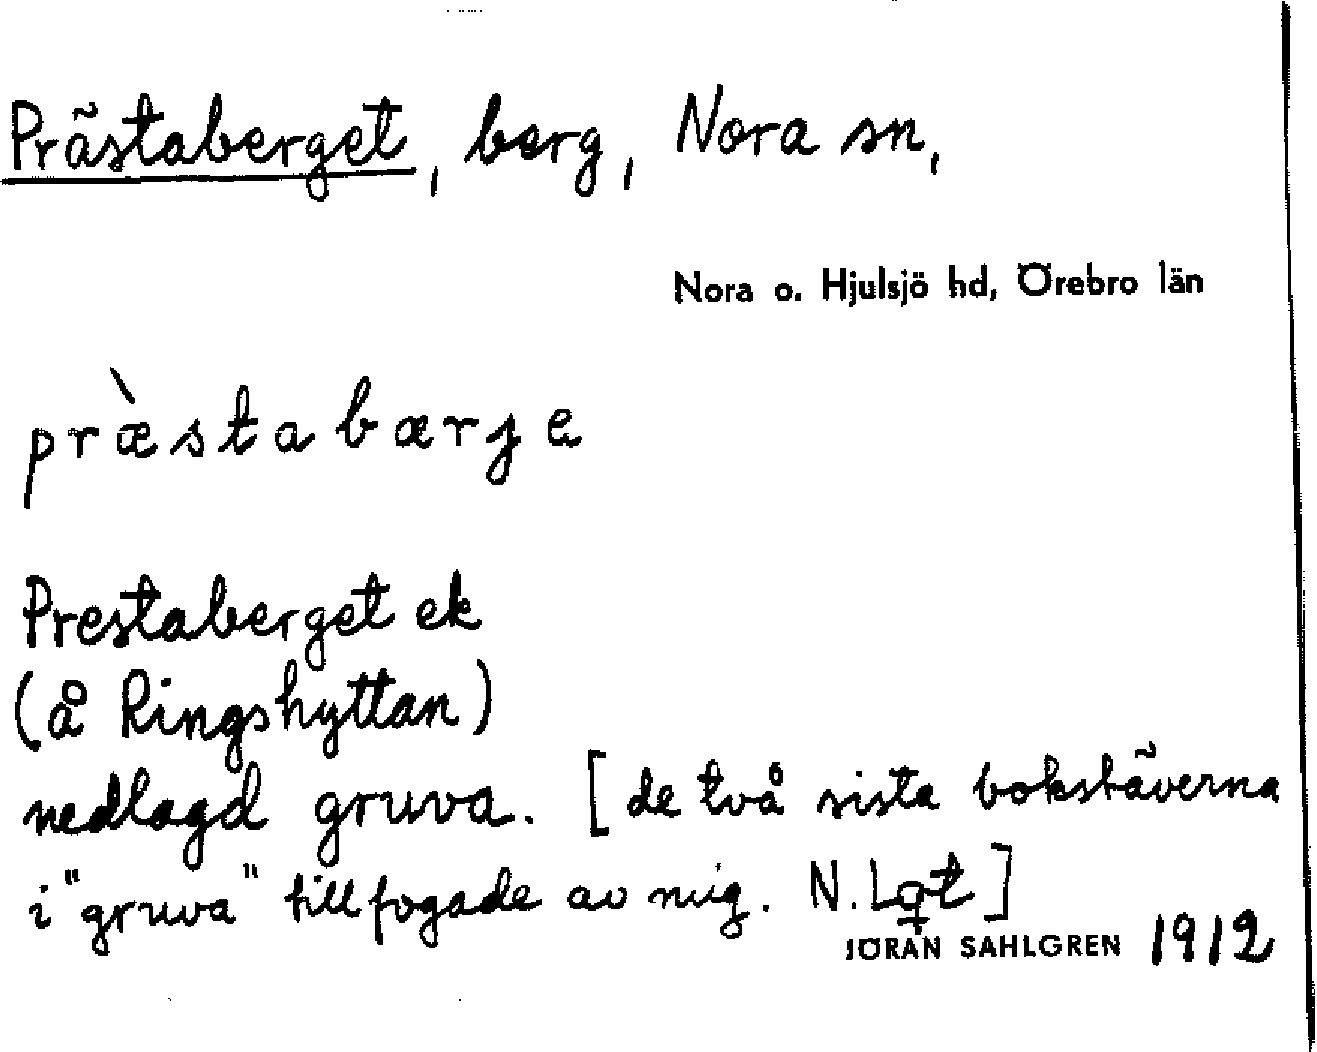 Prästaberget, berg, Nora sn,
Nora o. Hjulsjö hd, Örebro län
præ̀stabærje
Prestaberget ek
(å Ringshyttan)
nedlagd gruva. [de två sista bokstäverna
i "gruva" tillfogade av mig. N.
JÖRAN SAHLGREN 1912